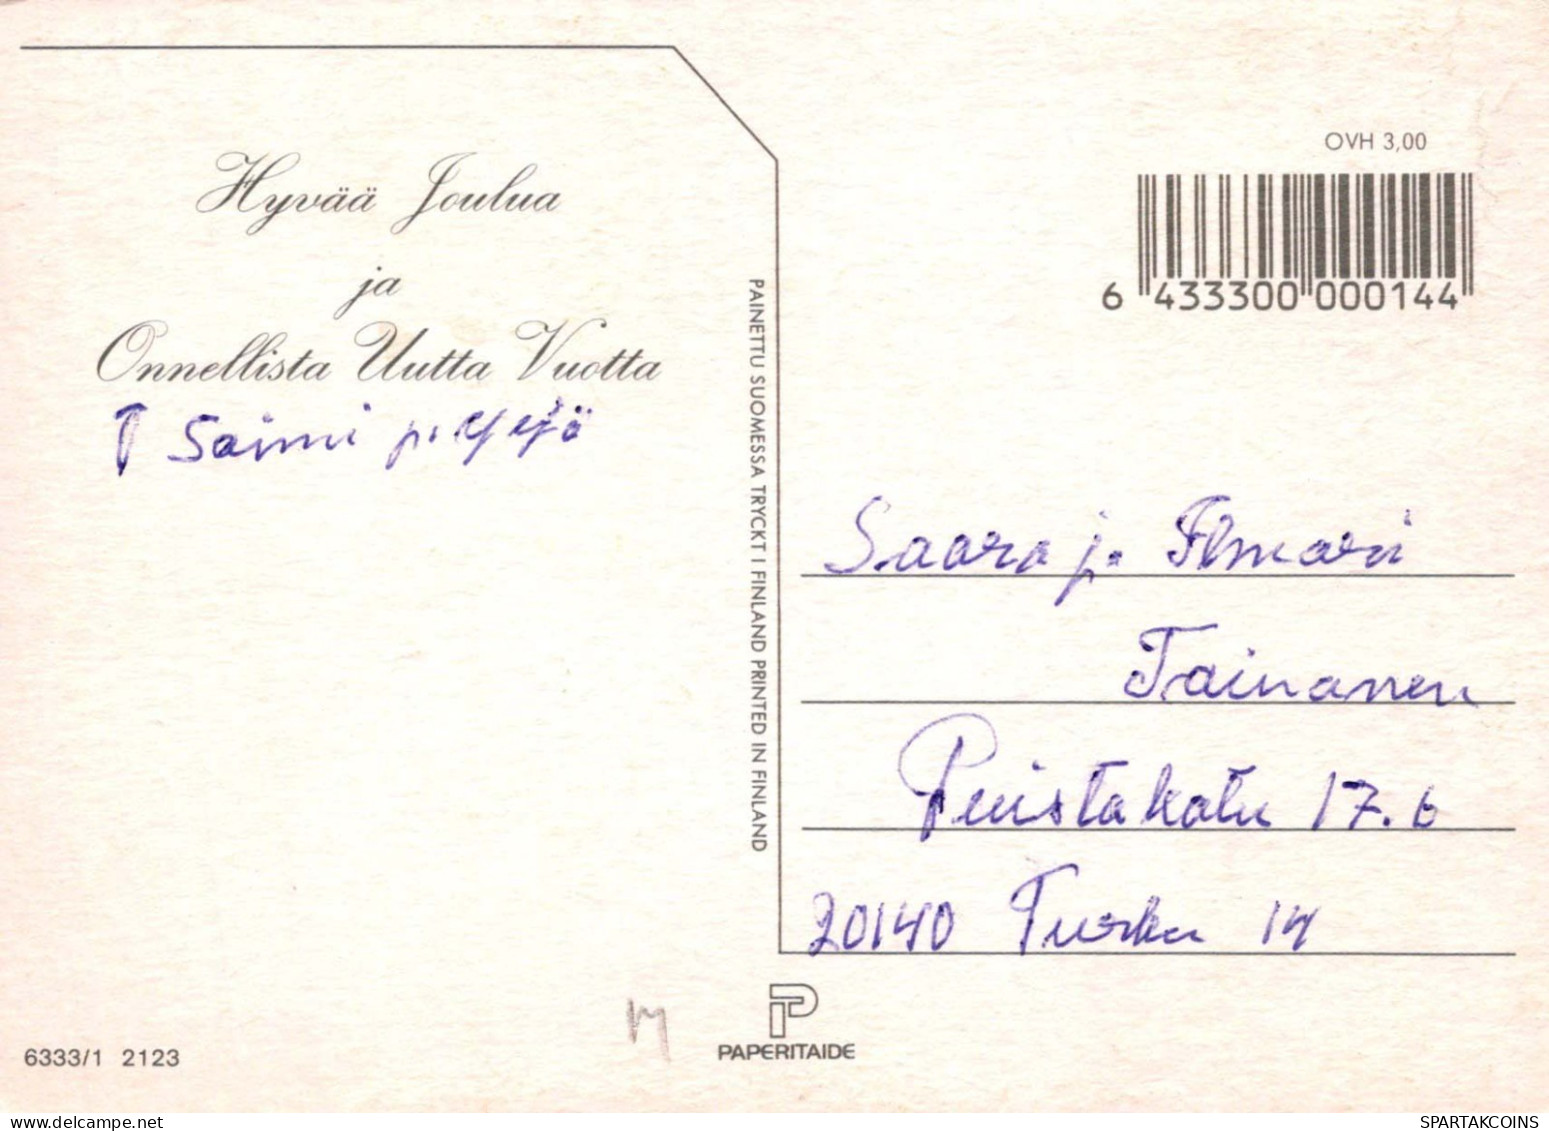 Hyvää Joulua
ja
Onnellista Uutta Vuotta
T Saimi
OVH 3,00
6 433300 000144
PAINETTU SUOMESSA TRYCKT I FINLAND PRINTED IN FINLAND
Saara j. Ilmari
Tainanen
Puistokatu 17.6
20140 Turku 14
PAPERITAIDE
6333/1 2123
SPARTAKCOINS